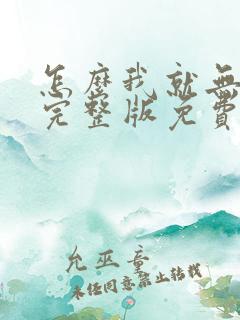 怎麽我就無
完整版免費
允巫童
未经同意禁止转载